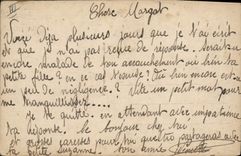 III
Chère Margot
Voici déja plusieurs jours que je t'ai écrit
et que je n'ai pas reçue de réponse. Serait tu
encore malade de ton accouchement ou bien ta
petite fille? en es cas Vomise? Ou bien encore est-
un peu de négligence? Vite un petit mot pour
me tranquilliser
Je te quitte en attendant avec impatience
ta réponse. Le bonjour chez toi
et grosses caresses pour
ta petite Suzanne. Ton amie